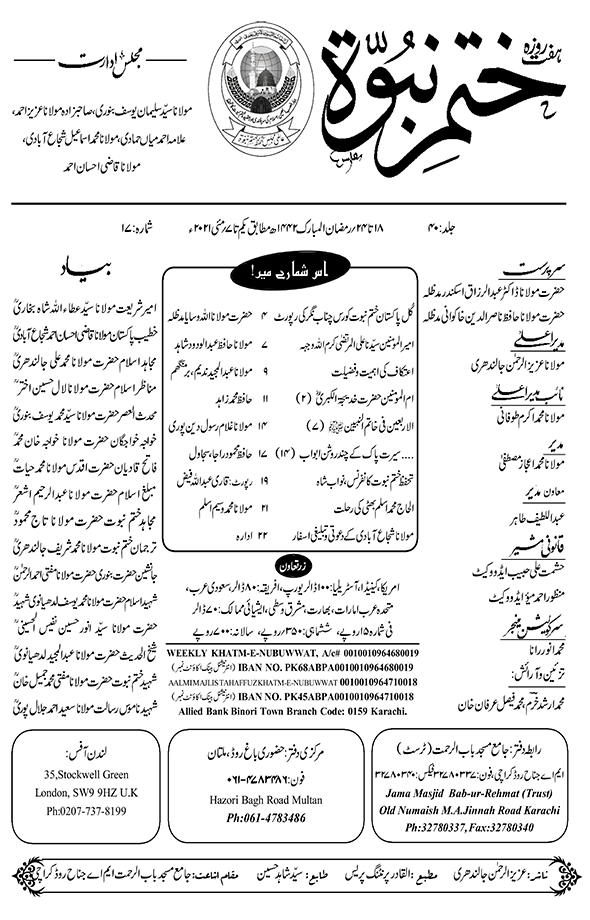 ہفت روزہ
ختم نبوّۃ
مجلس ادارت
مولانا سیّد سلیمان یوسف بنوری، صاحبزادہ مولانا عزیز احمد،
علامہ احمد میاں حمادی، مولانا محمد اسماعیل شجاع آبادی،
مولانا قاضی احسان احمد
جلد: ۴۰
۱۸ تا ۲۴؍ رمضان المبارک ۱۴۴۲ھ مطابق یکم تا ۷؍ مئی ۲۰۲۱ء
شمارہ: ۱۷
سرپرست
حضرت مولانا ڈاکٹر عبدالرزاق اسکندر مدظلہ
حضرت مولانا حافظ ناصرالدین خاکوانی مدظلہ
مدیر اعلیٰ
مولانا عزیز الرحمٰن جالندھری
نائب مدیر اعلیٰ
مولانا محمد اکرم طوفانی
مدیر
مولانا محمد اعجاز مصطفیٰ
معاون مدیر
عبداللطیف طاہر
قانونی مشیر
حشمت علی حبیب ایڈووکیٹ
منظور احمد میؤ ایڈووکیٹ
سرکولیشن منیجر
محمد انور رانا
تزئین و آرائش:
محمد ارشد خرم، محمد فیصل عرفان خان
اس شمارے میں!
کُل پاکستان ختم نبوت کورس چناب نگر کی رپورٹ ۴ حضرت مولانا اللہ وسایا مدظلہ
امیر المؤمنین سیّدنا علی المرتضیٰ کرم اللہ وجہہ ۷ مولانا حافظ عبدالودود شاہد
اعتکاف کی اہمیت و فضیلت ۹ مولانا عبدالمجید ندیم، برمنگھم
ام المؤمنین حضرت خدیجۃ الکبریٰؓ (۲) ۱۱ حافظ محمد زاہد
الاربعین فی خاتم النّبیین ﷺ (۷) ۱۴ مولانا غلام رسول دین پوری
....سیرت پاک کے چند روشن ابواب (۱۴) ۱۷ حافظ محمود راجا، سجاول
تحفظ ختم نبوت کانفرنس، نواب شاہ ۱۹ رپورٹ: قاری عبداللہ فیض
الحاج محمد اسلم بھٹی کی رحلت ۲۱ مولانا محمد وسیم اسلم
مولانا شجاع آبادی کے دعوتی و تبلیغی اسفار ۲۲ ادارہ
زرتعاون
امریکا، کینیڈا، آسٹریلیا: ۱۰۰ ڈالر یورپ، افریقہ: ۸۰ ڈالر، سعودی عرب،
متحدہ عرب امارات، بھارت، مشرق وسطیٰ، ایشیائی ممالک: ۷۰ ڈالر
فی شمارہ ۱۵ روپے، ششماہی: ۳۵۰ روپے، سالانہ: ۷۰۰ روپے
WEEKLY KHATM-E-NUBUWWAT, A/c# 0010010964680019
IBAN NO. PK68ABPA0010010964680019 (انٹرنیشنل بینک اکاؤنٹ نمبر)
AALMIMAJLISTAHAFFUZKHATM-E-NUBUWWAT 0010010964710018
IBAN NO. PK45ABPA0010010964710018 (انٹرنیشنل بینک اکاؤنٹ نمبر)
Allied Bank Binori Town Branch Code: 0159 Karachi.
بیاد
امیر شریعت مولانا سیّد عطاء اللہ شاہ بخاریؒ
خطیب پاکستان مولانا قاضی احسان احمد شجاع آبادیؒ
مجاہد اسلام حضرت مولانا محمد علی جالندھریؒ
مناظر اسلام حضرت مولانا لال حسین اخترؒ
محدث العصر حضرت مولانا سیّد محمد یوسف بنوریؒ
خواجہ خواجگان حضرت مولانا خواجہ خان محمدؒ
فاتح قادیان حضرت اقدس مولانا محمد حیاتؒ
مبلغ اسلام حضرت مولانا عبدالرحیم اشعرؒ
مجاہد ختم نبوت حضرت مولانا تاج محمودؒ
ترجمان ختم نبوت مولانا محمد شریف جالندھریؒ
جانشین حضرت بنوری حضرت مولانا مفتی احمد الرحمٰنؒ
شہید اسلام حضرت مولانا محمد یوسف لدھیانوی شہیدؒ
حضرت مولانا سیّد انور حسین نفیس الحسینیؒ
شیخ الحدیث حضرت مولانا عبدالمجید لدھیانویؒ
شہید ختم نبوت حضرت مولانا مفتی محمد جمیل خانؒ
شہید ناموس رسالت مولانا سعید احمد جلال پوریؒ
رابطہ دفتر: جامع مسجد باب الرحمت (ٹرسٹ)
ایم اے جناح روڈ کراچی، فون: ۳۲۷۸۰۳۳۷ فیکس: ۳۲۷۸۰۳۴۰
Jama Masjid Bab-ur-Rehmat (Trust)
Old Numaish M.A.Jinnah Road Karachi
Ph:32780337, Fax:32780340
مرکزی دفتر: حضوری باغ روڈ، ملتان
فون: ۰۶۱-۴۷۸۳۴۸۶
Hazori Bagh Road Multan
Ph:061-4783486
لندن آفس:
35,Stockwell Green
London, SW9 9HZ U.K
Ph:0207-737-8199
ناشر: عزیز الرحمٰن جالندھری مطبع: القادر پرنٹنگ پریس طابع: سیّد شاہد حسین مقام اشاعت: جامع مسجد باب الرحمت ایم اے جناح روڈ کراچی